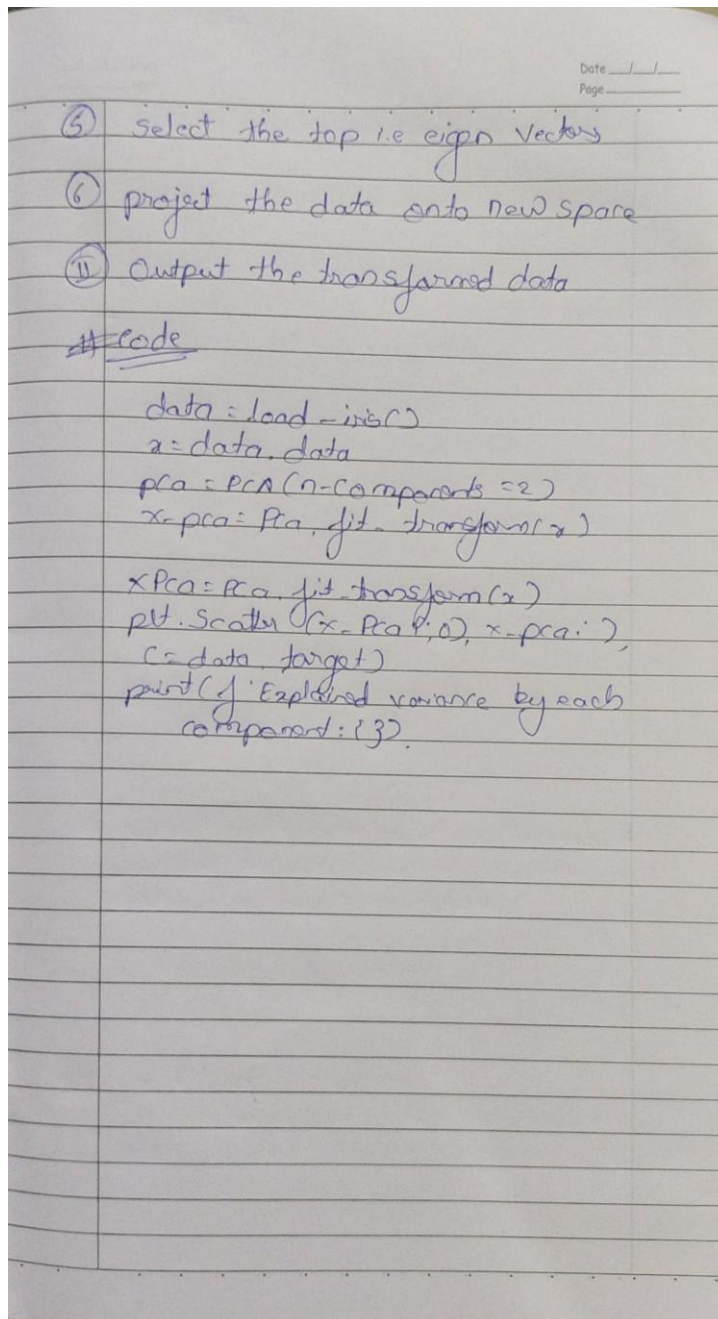 Date __/__/__
Page ______
⑤ Select the top i.e eigen Vectors
⑥ project the data onto new space
⑪ Output the transformed data
# code
data = load_iris()
x = data.data
pca = PCA (n-components = 2)
x-pca = Pca. fit_transform(x)
xPca = pca. fit_transform(x)
plt. Scatter (x_Pca :,0), x_pca: ),
c = data. target)
print(f 'Explained variance by each
component: {3).